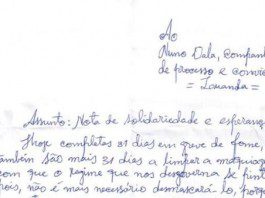 Ao
Nuno Dala, companh
de processo e convic
= Luanda =
Assunto: Nota de solidariedade e esperanç
Hoje completas 31 dias em greve de fome,
também são mais 31 dias a limpar a maquiag
com que o regime que nos desgoverna se pint
pois, não é mais necessário demascará-lo, porq